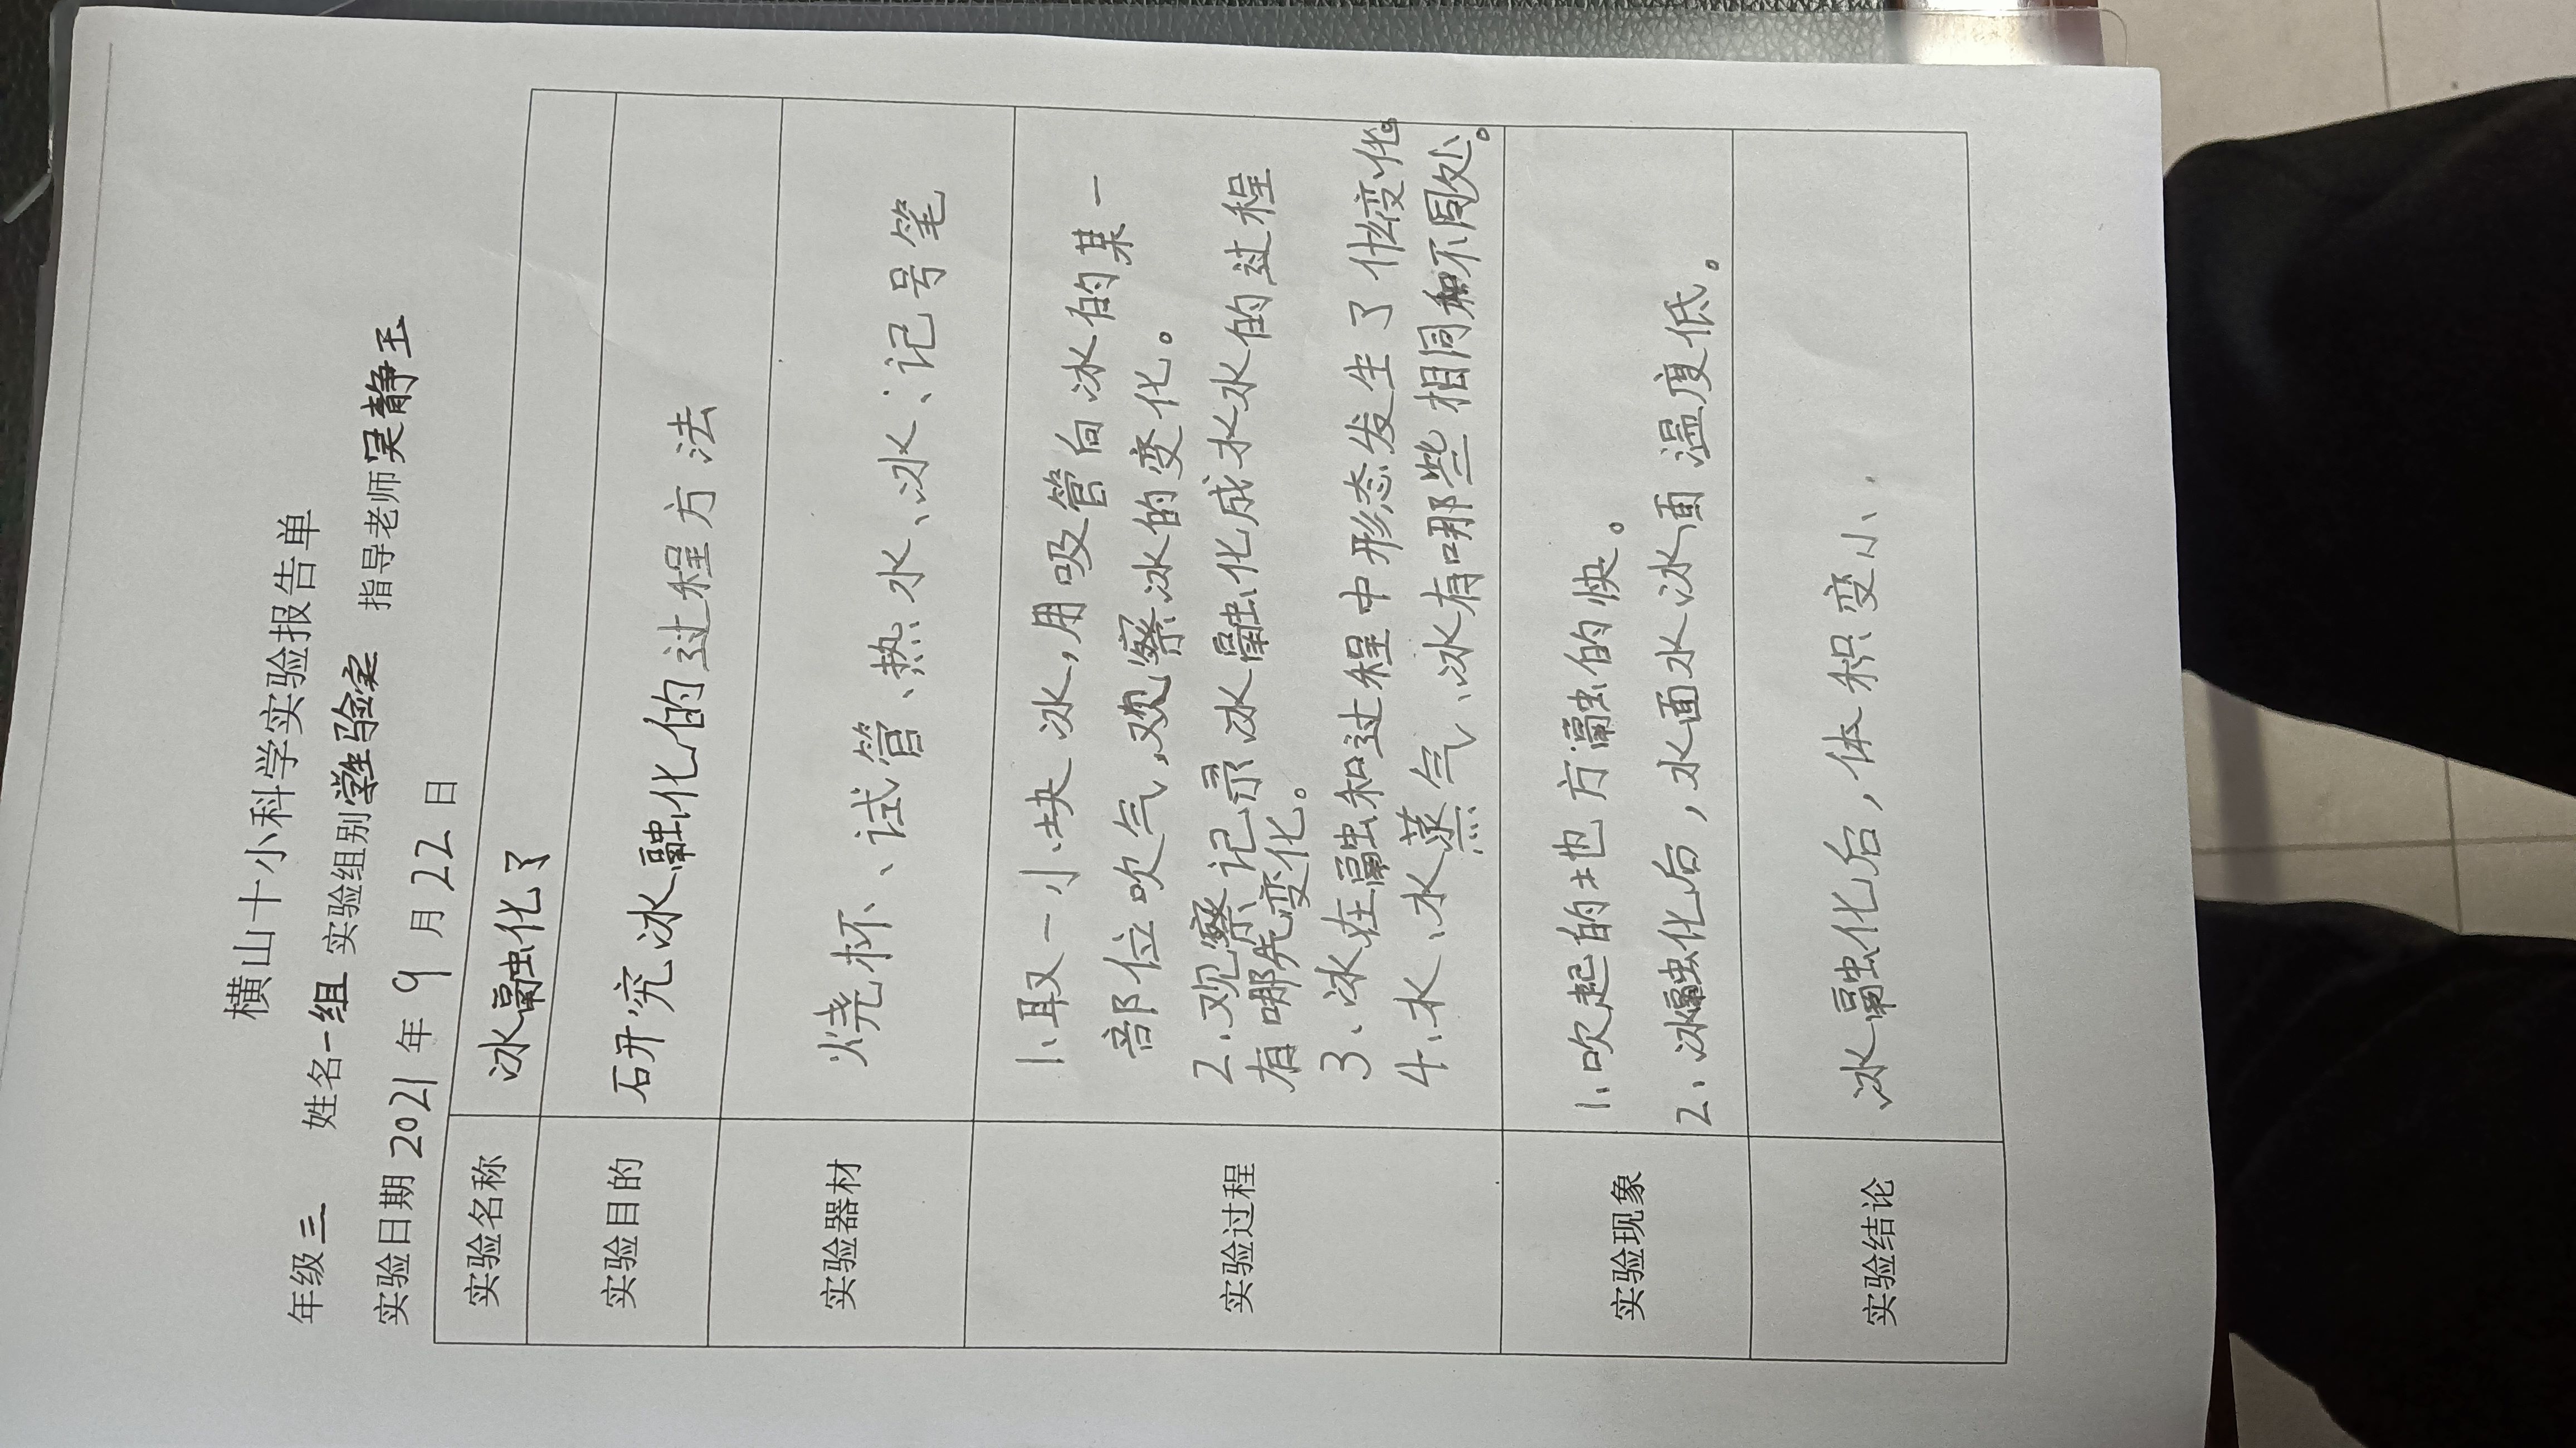 横山十小科学实验报告单
年级三 姓名一组 实验组别学生验实 指导老师吴静玉
实验日期2021年9月22日
实验名称 冰融化了
实验目的 研究冰融化的过程方法
实验器材 烧杯、试管、热水、冰、记号笔
实验过程
1.取一小块冰,用吸管向冰的某一
部位吹气,观察冰的变化。
2.观察记录冰融化成水水的过程
有哪先变化。
3、冰在融和过程中形态发生了什么变化。
4.水、水蒸气、冰有哪些相同和不同处。
实验现象
1.吹起的地方融的快。
2.冰融化后,水面水冰面温度低。
实验结论 冰融化后,体积变小.